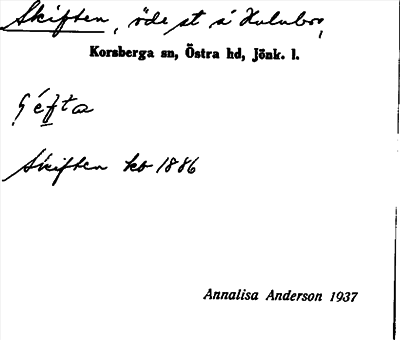 Skiften, öde st å Hulubo,
Korsberga sn, Östra hd, Jönk. l.
Skiften kb 1886
Annalisa Anderson 1937